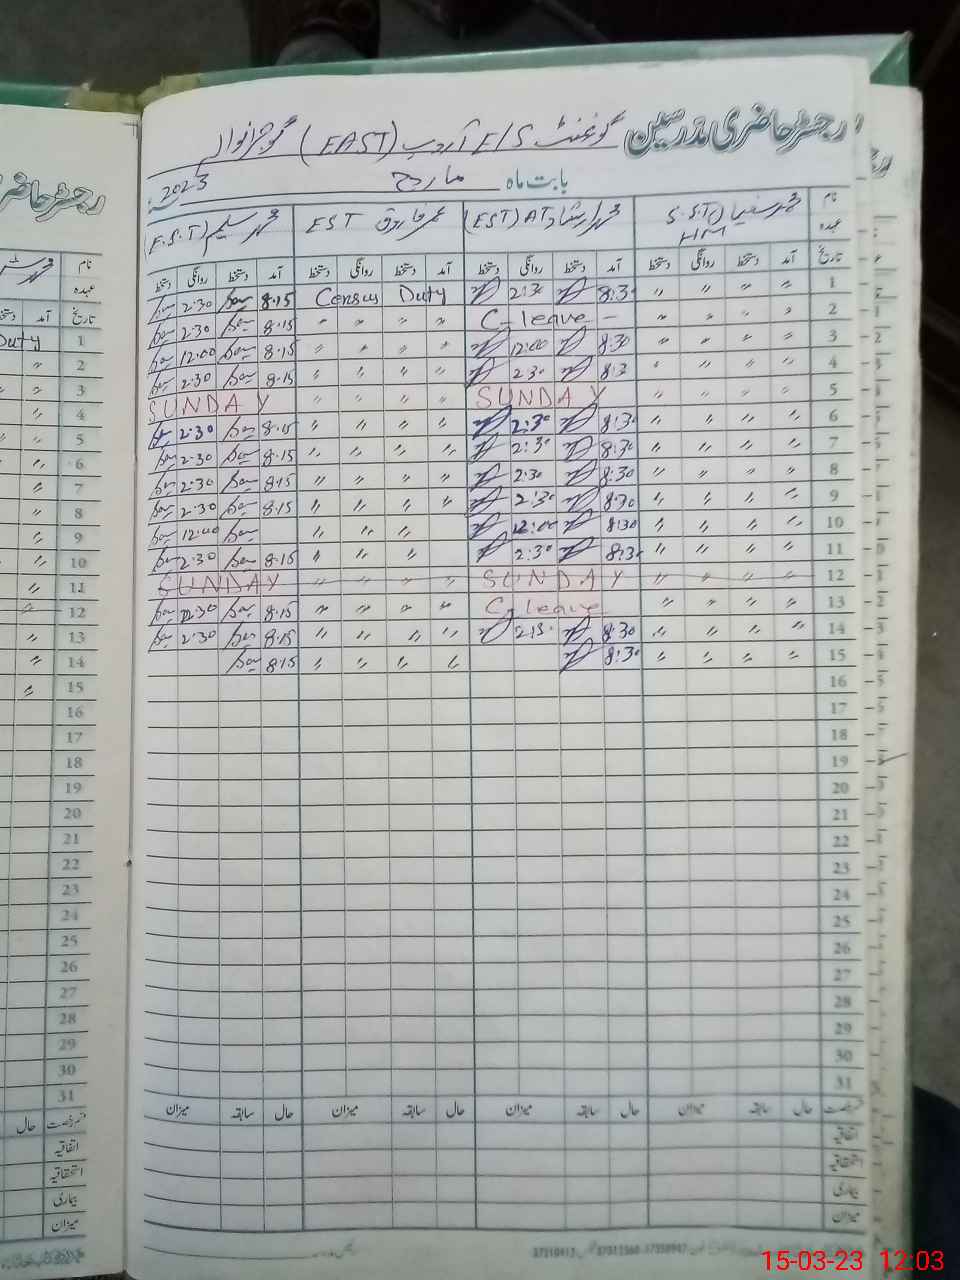 رجسٹر حاضری مدرسین گورنمنٹ E/S اروپ (EAST) گوجرانوالہ
بابت ماہ مارچ 2023
نام محمد (S.S.T) HM محمد ارشاد (EST) AT عمر فاروق EST محمد سلیم (E.S.T)
عہدہ
تاریخ آمد دستخط روانگی دستخط آمد دستخط روانگی دستخط آمد دستخط روانگی دستخط آمد دستخط روانگی دستخط
1 〃 〃 〃 〃 8:30 2:30 Census Duty 8.15 2:30
2 〃 〃 〃 〃 C-leave - 〃 〃 〃 〃 8.15 2.30
3 〃 〃 〃 〃 8:30 12:00 〃 〃 〃 〃 8.15 12:00
4 〃 〃 〃 〃 8:3 2:30 〃 〃 〃 〃 8.15 2:30
5 〃 〃 〃 〃 SUNDAY 〃 〃 〃 〃 SUNDAY
6 〃 〃 〃 〃 8:30 2:30 〃 〃 〃 〃 8.15 2:30
7 〃 〃 〃 〃 8:30 2:30 〃 〃 〃 〃 8.15 2:30
8 〃 〃 〃 〃 8:30 2:30 〃 〃 〃 〃 8.15 2:30
9 〃 〃 〃 〃 8:30 2:30 〃 〃 〃 〃 8.15 2:30
10 〃 〃 〃 〃 8:30 12:00 〃 〃 〃 12:00
11 〃 〃 〃 〃 8:30 2:30 〃 〃 〃 8.15 2:30
12 〃 〃 〃 〃 SUNDAY 〃 〃 〃 〃 SUNDAY
13 〃 〃 〃 〃 C-leave 〃 〃 〃 〃 8.15 2:30
14 〃 〃 〃 〃 8:30 2:15 〃 〃 〃 〃 8.15 2:30
15 〃 〃 〃 〃 8:30 〃 〃 〃 〃 8.15
16
17
18
19
20
21
22
23
24
25
26
27
28
29
30
31
رخصت حال سابقہ میزان حال سابقہ میزان حال سابقہ میزان حال سابقہ میزان
اتفاقیہ
استحقاقیہ
بیماری
میزان
نام
عہدہ
تاریخ آمد
1 Duty
2 〃
3 〃
4 〃
5 〃
6 〃
7 〃
8 〃
9 〃
10 〃
11 〃
12 〃
13 〃
14 〃
15 〃
16
17
18
19
20
21
22
23
24
25
26
27
28
29
30
31
رخصت حال
اتفاقیہ
استحقاقیہ
بیماری
میزان
15-03-23 12:03